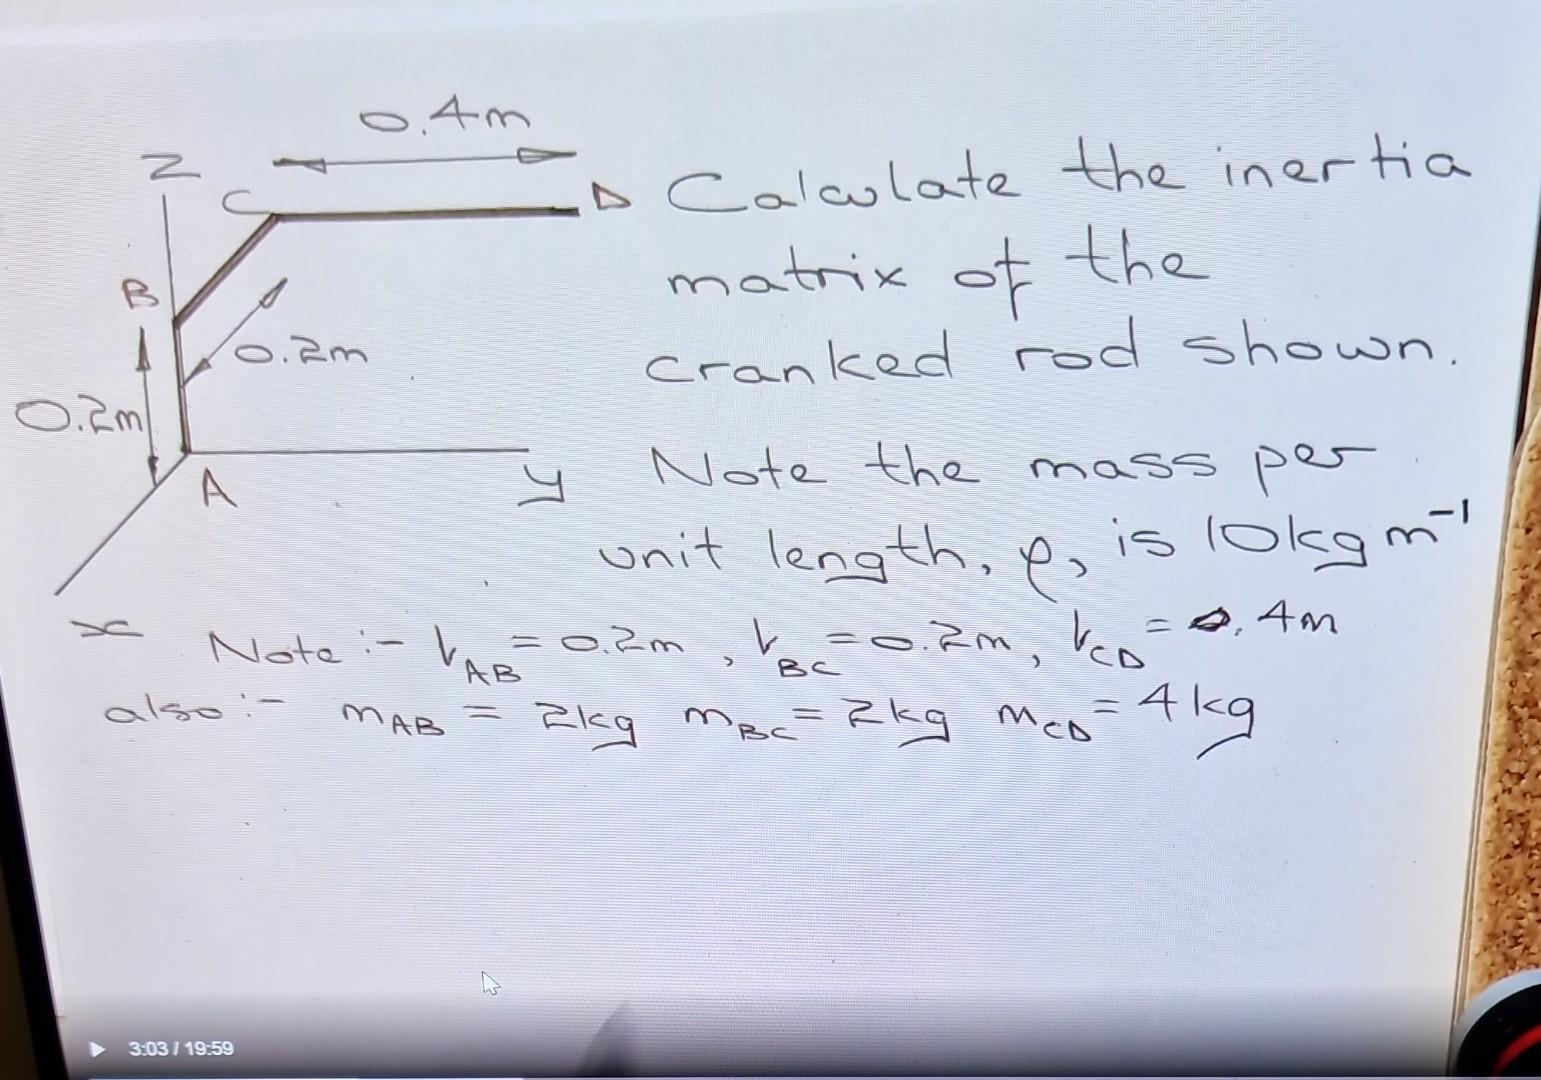 0.4m
Z
C
D
Calculate the inertia
matrix of the
B
0.2m
cranked rod shown.
0.2m
A
y
Note the mass per
unit length, ρ, is 10kg m⁻¹
x
Note :- l_AB = 0.2m, l_BC = 0.2m, l_CD = 0.4m
also :- m_AB = 2kg m_BC = 2kg m_CD = 4kg
3:03 / 19:59